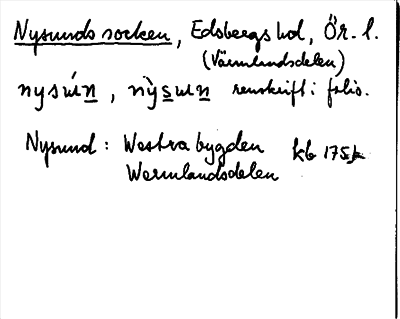 Nysunds socken, Edsbergs hd, Ör. l.
(Värmlandsdelen)
nysún, nỳsun renskrift i folio.
Nysund: Westra bygden kb 175
Wermlandsdelen